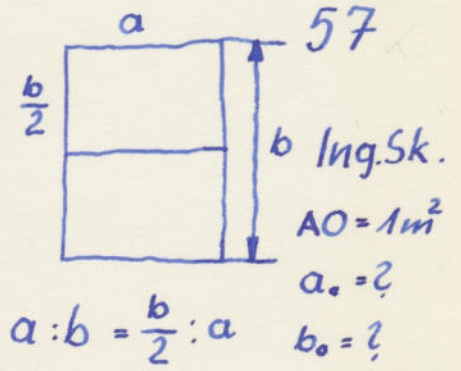 a
57
b/2
b
Ing.Sk.
AO = 1m²
a₀ = ?
b₀ = ?
a : b = b/2 : a